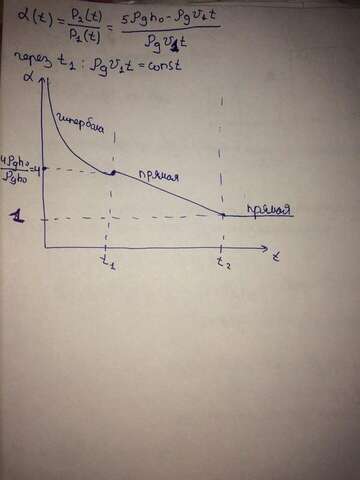 α(t) = P₂(t)/P₁(t) = (5ρgh₀ - ρgv₁t)/(ρgv1t)
через t₁ : ρgv₁t = const
α
гипербола
4ρgh₀/ρgh₀ = 4
прямая
1
прямая
t₁
t₂
t